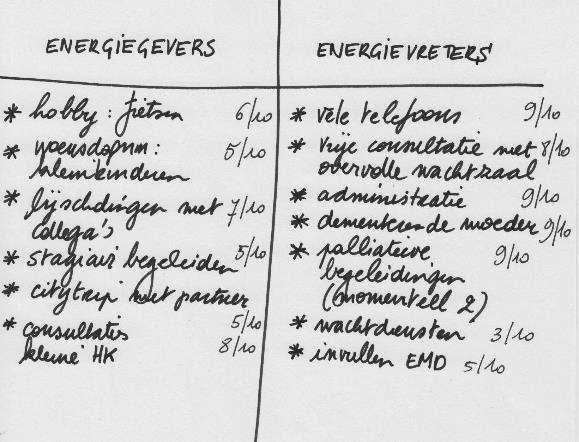 ENERGIEGEVERS
* hobby : fietsen 6/10
* woensdagnm : 5/10
kleinkinderen
* bijscholingen met 7/10
collega's
* stagiair begeleiden 5/10
* citytrip met partner
5/10
* consultaties
kleine HK 8/10
ENERGIEVRETERS
* vele telefoons 9/10
* vrije consultatie met 8/10
overvolle wachtzaal
* administratie 9/10
* dementerende moeder 9/10
* palliatieve 9/10
begeleidingen
(momenteel 2)
* wachtdiensten 3/10
* invullen EMD 5/10